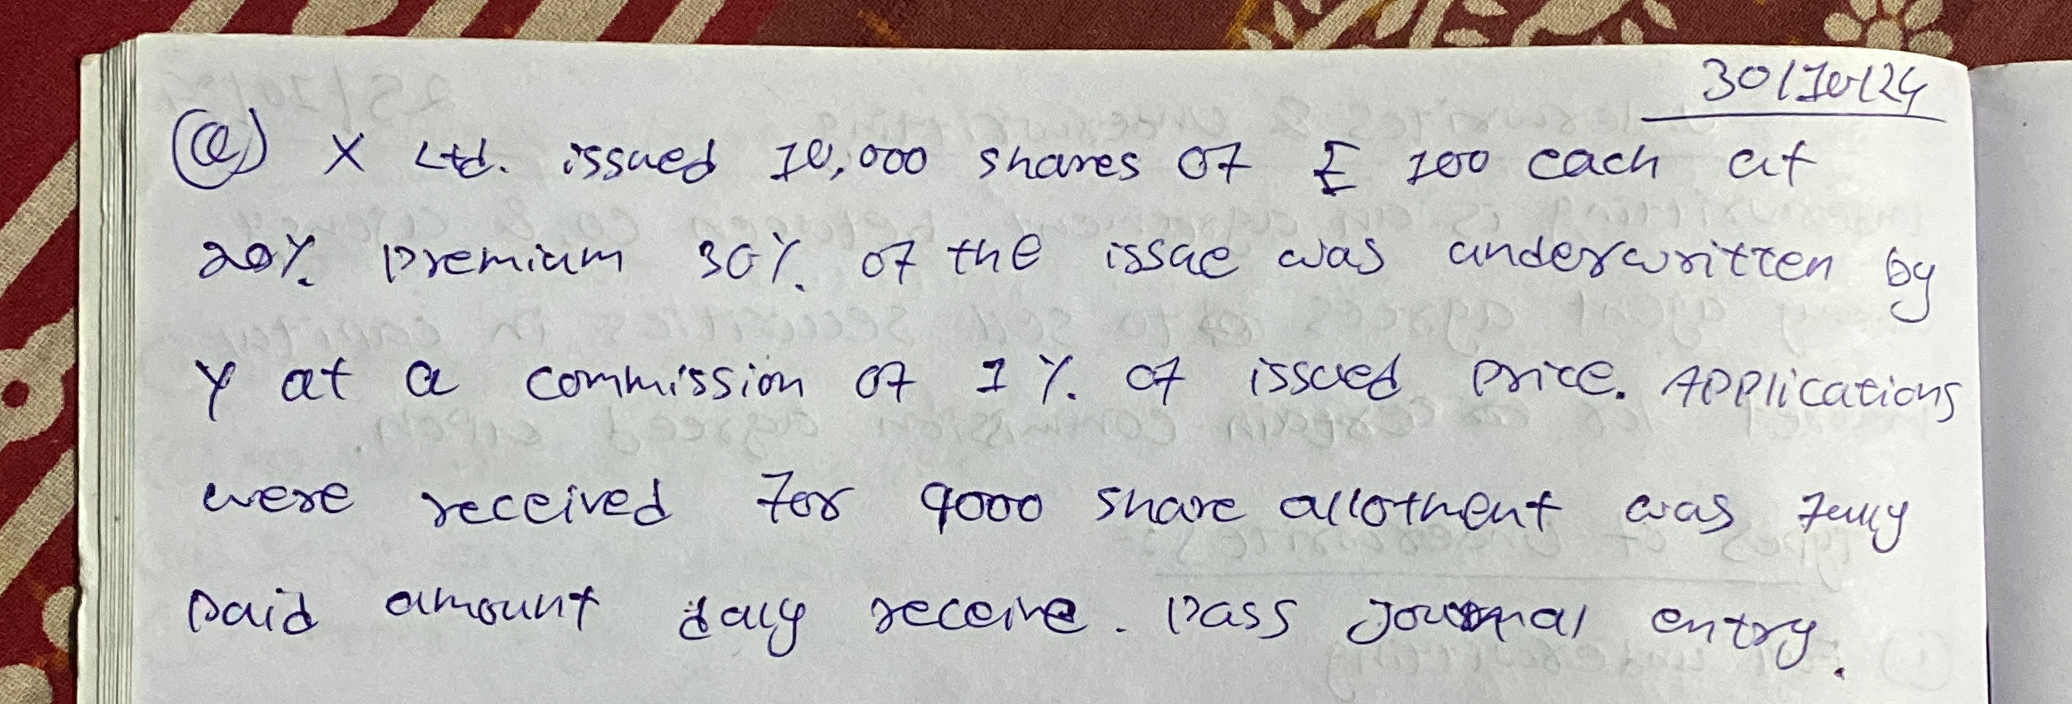 30/10/24
(Q) X Ltd. issued 10,000 shares of £ 100 each at
20% premium 30% of the issue was underwritten by
Y at a commission of 1 % of issued price. Applications
were received for 9000 share allotment was fully
paid amount dauy receive. pass journal entry.